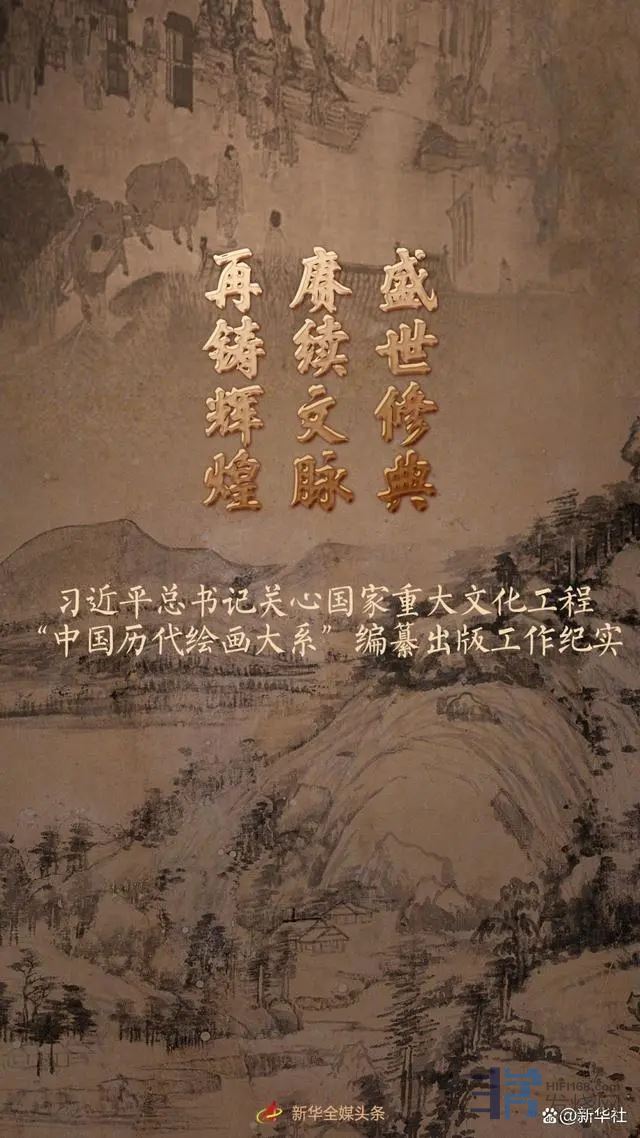 盛世修典
赓续文脉
再铸辉煌
习近平总书记关心国家重大文化工程
“中国历代绘画大系”编纂出版工作纪实
新华全媒头条
HIFI168.com
@新华社